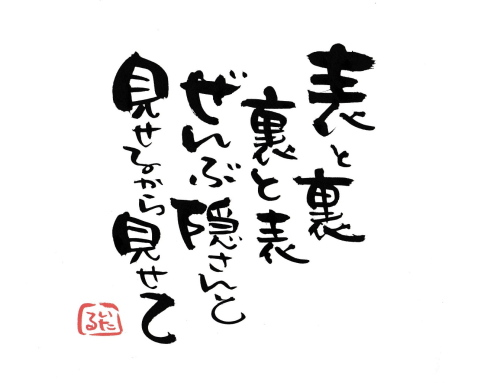 表と裏
裏と表
ぜんぶ隠さんと
見せるから見せて